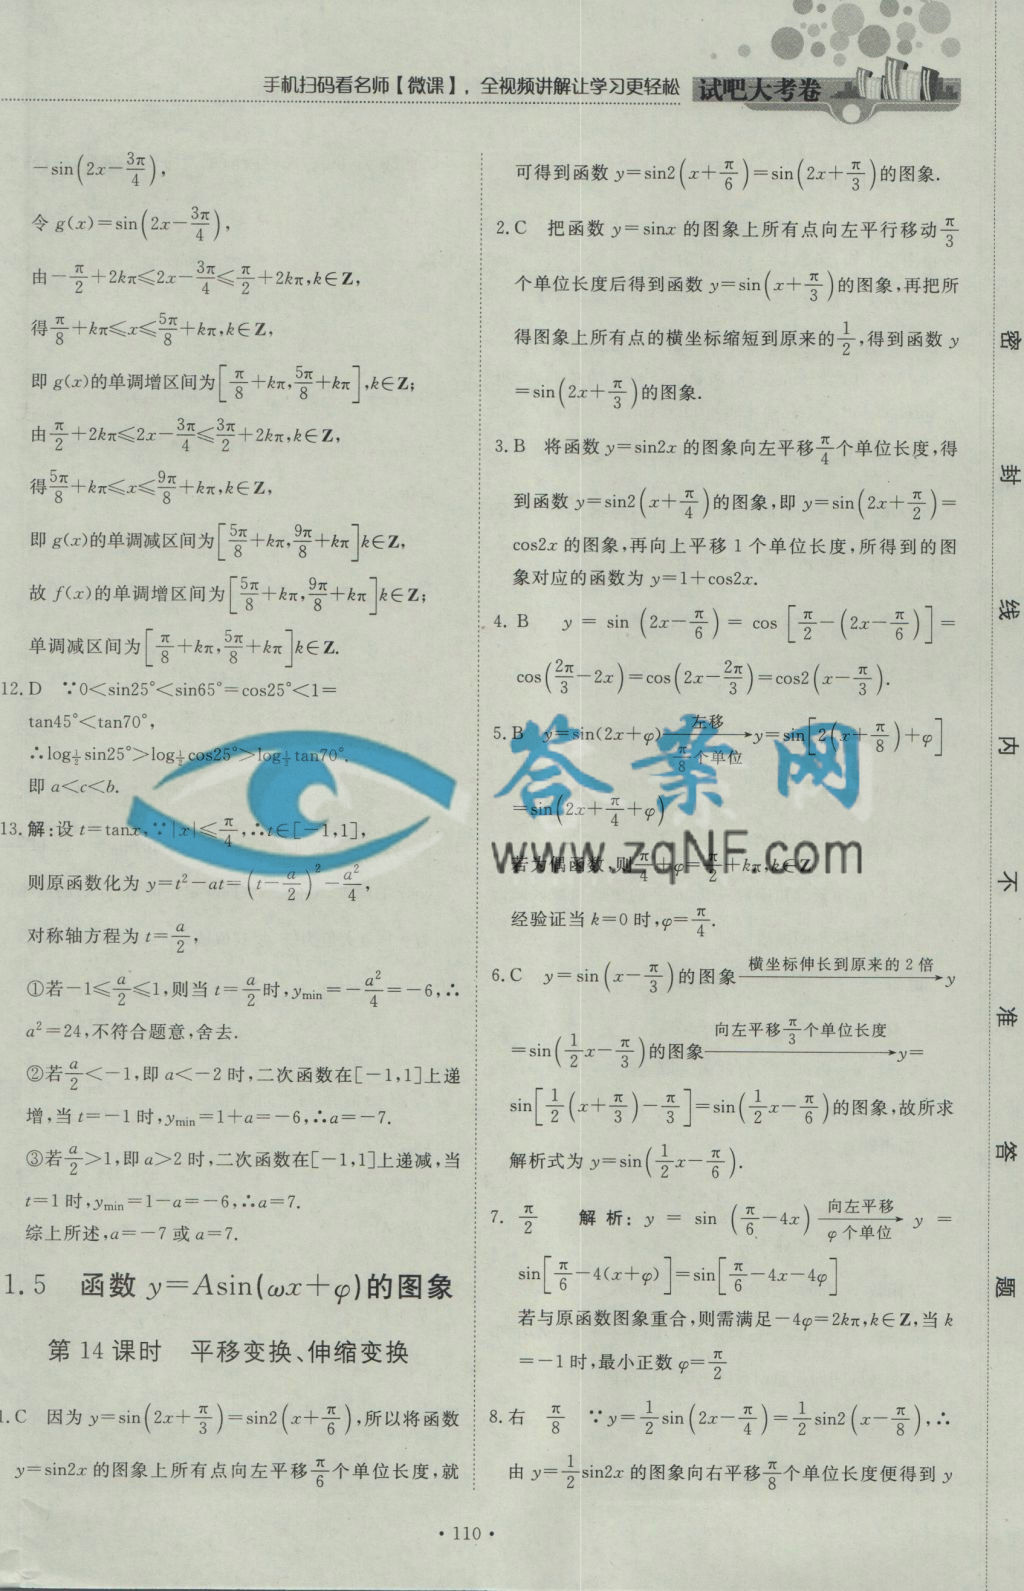 手机扫码看名师【微课】，全视频讲解让学习更轻松
试吧大考卷
－sin(2x－3π/4)，
令 g(x)＝sin(2x－3π/4)，
由－π/2＋2kπ≤2x－3π/4≤π/2＋2kπ,k∈Z，
得π/8＋kπ≤x≤5π/8＋kπ,k∈Z，
即 g(x)的单调增区间为[π/8＋kπ,5π/8＋kπ],k∈Z；
由π/2＋2kπ≤2x－3π/4≤3π/2＋2kπ,k∈Z，
得5π/8＋kπ≤x≤9π/8＋kπ,k∈Z，
即 g(x)的单调减区间为[5π/8＋kπ,9π/8＋kπ]k∈Z，
故 f(x)的单调增区间为[5π/8＋kπ,9π/8＋kπ]k∈Z；
单调减区间为[π/8＋kπ,5π/8＋kπ]k∈Z.
12.D ∵0＜sin25°＜sin65°＝cos25°＜1＝
tan45°＜tan70°，
∴log½sin25°＞log½cos25°＞log½tan70°.
即 a＜c＜b.
13.解:设 t＝tanx,∵|x|≤π/4,∴t∈[－1,1]，
则原函数化为 y＝t²－at＝(t－a/2)²－a²/4，
对称轴方程为 t＝a/2，
①若－1≤a/2≤1,则当 t＝a/2时,ymin＝－a²/4＝－6,∴
a²＝24,不符合题意,舍去.
②若a/2＜－1,即 a＜－2 时,二次函数在[－1,1]上递
增,当 t＝－1 时,ymin＝1＋a＝－6,∴a＝－7.
③若a/2＞1,即 a＞2 时,二次函数在[－1,1]上递减,当
t＝1 时,ymin＝1－a＝－6,∴a＝7.
综上所述,a＝－7 或 a＝7.
1.5 函数 y＝Asin(ωx＋φ)的图象
第 14 课时 平移变换、伸缩变换
1.C 因为 y＝sin(2x＋π/3)＝sin2(x＋π/6),所以将函数
y＝sin2x 的图象上所有点向左平移π/6个单位长度,就
可得到函数 y＝sin2(x＋π/6)＝sin(2x＋π/3)的图象.
2.C 把函数 y＝sinx 的图象上所有点向左平行移动π/3
个单位长度后得到函数 y＝sin(x＋π/3)的图象,再把所
得图象上所有点的横坐标缩短到原来的1/2,得到函数 y
＝sin(2x＋π/3)的图象.
3.B 将函数 y＝sin2x 的图象向左平移π/4个单位长度,得
到函数 y＝sin2(x＋π/4)的图象,即 y＝sin(2x＋π/2)＝
cos2x 的图象,再向上平移 1 个单位长度,所得到的图
象对应的函数为 y＝1＋cos2x.
4.B y＝sin(2x－π/6)＝cos[π/2－(2x－π/6)]＝
cos(2π/3－2x)＝cos(2x－2π/3)＝cos2(x－π/3).
5.B y＝sin(2x＋φ) 左移 π/8个单位→ y＝sin[2(x＋π/8)＋φ]
＝sin(2x＋π/4＋φ)
若为偶函数,则π/4＋φ＝π/2＋kπ,k∈Z
经验证当 k＝0 时,φ＝π/4.
6.C y＝sin(x－π/3)的图象 横坐标伸长到原来的 2 倍→ y
＝sin(1/2x－π/3)的图象 向左平移π/3个单位长度→ y＝
sin[1/2(x＋π/3)－π/3]＝sin(1/2x－π/6)的图象,故所求
解析式为 y＝sin(1/2x－π/6).
7. π/2 解析: y＝sin(π/6－4x) 向左平移 φ个单位→ y＝
sin[π/6－4(x＋φ)]＝sin[π/6－4x－4φ]
若与原函数图象重合,则需满足－4φ＝2kπ,k∈Z,当 k
＝－1 时,最小正数 φ＝π/2
8.右 π/8 ∵y＝1/2sin(2x－π/4)＝1/2sin2(x－π/8),∴
由 y＝1/2sin2x 的图象向右平移π/8个单位长度便得到 y
密 封 线 内 不 准 答 题
答案网
www.zqNF.com
· 110 ·